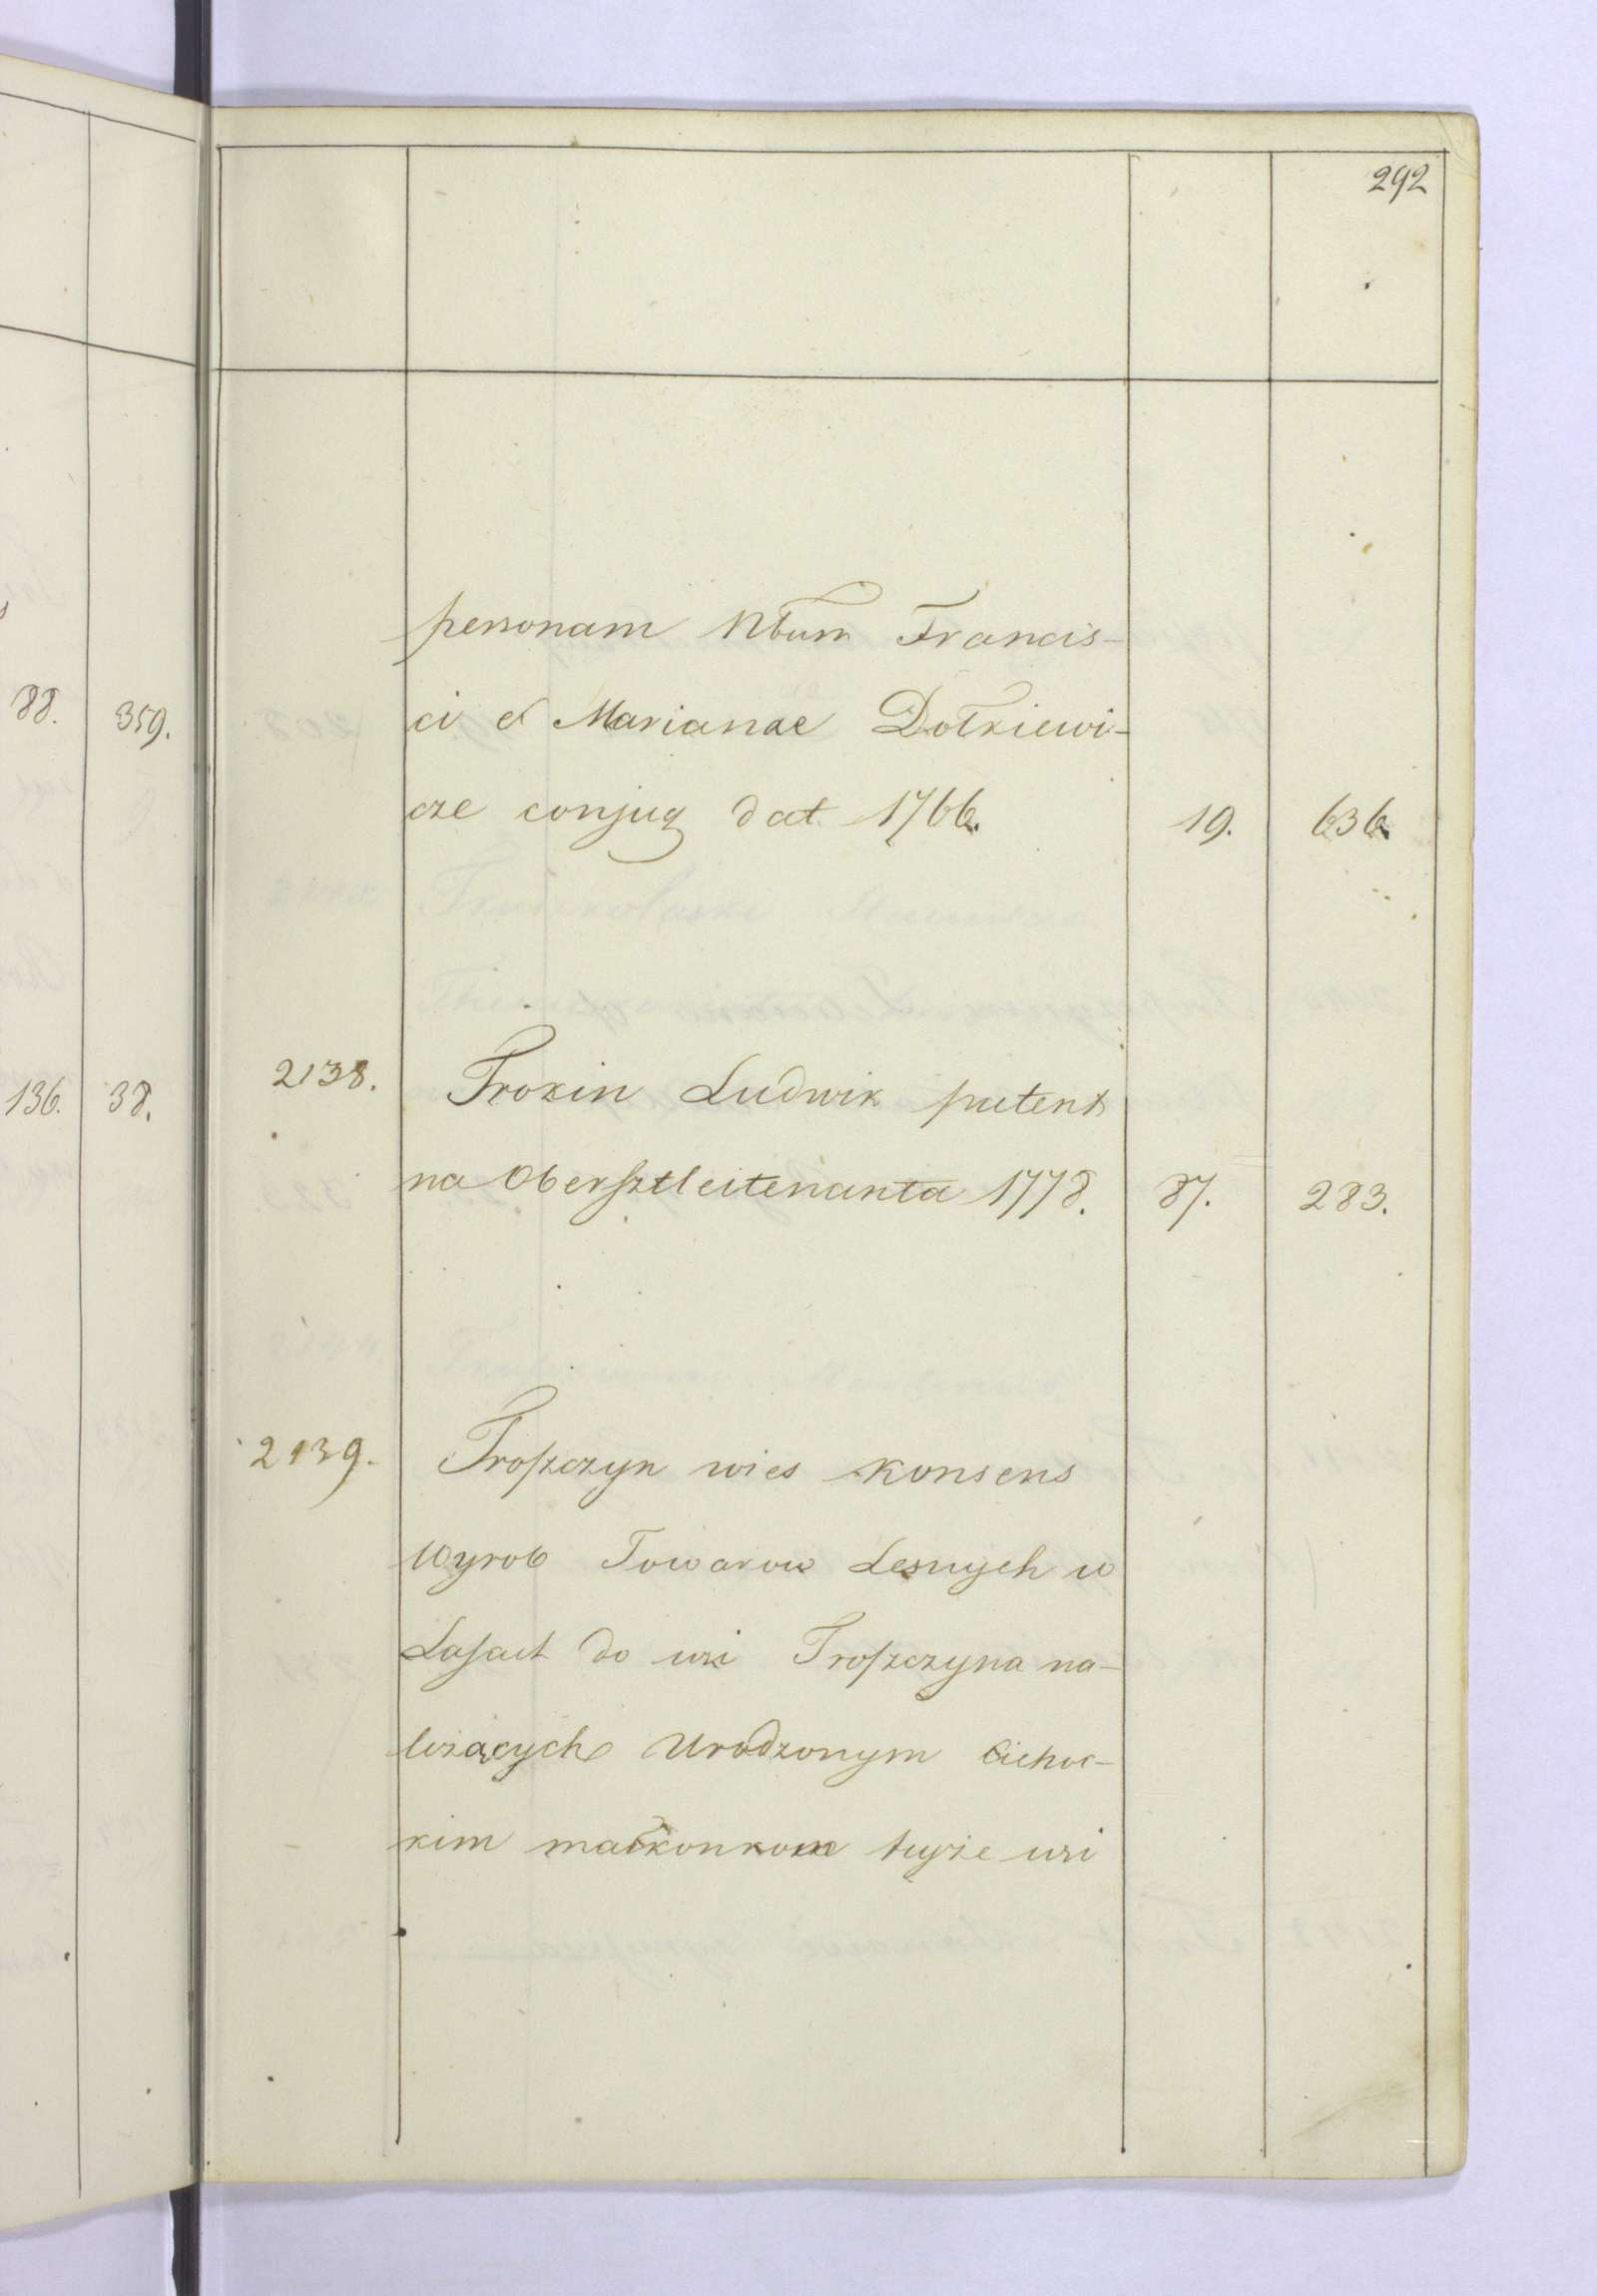 292
personam Nbum Francis-
ci et Marianae Dołkiewi-
cze conjug dat 1766. 19. 636
2138. Trokin Ludwik patent
na Obersztleitenanta 1778. 87. 283.
2139. Troszczyn wies konsens
Wyrob Towarow Lesnych w
Lasach do wsi Troszczyna na-
leżących Urodzonym Cichoc-
kim małkonkom teyże wsi
88. 359.
136. 38.